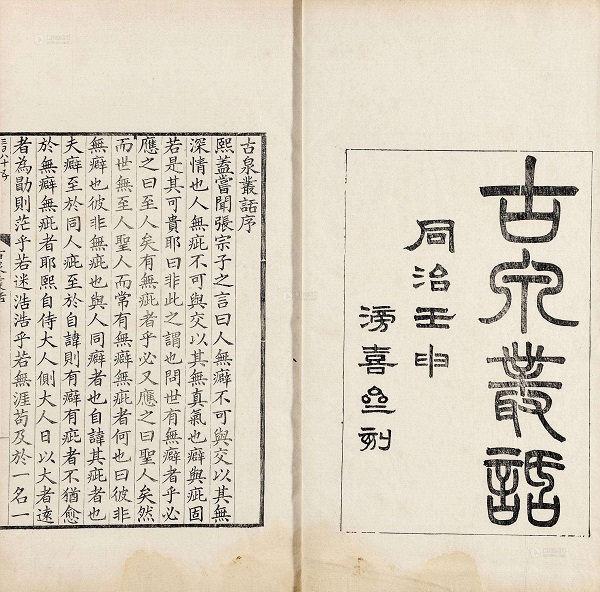 古泉叢話
同治壬申
滂喜亝刻
古泉叢話序
熙蓋嘗聞張宗子之言曰人無癖不可與交以其無
深情也人無疵不可與交以其無真氣也癖與疵固
若是其可貴耶曰非此之謂也問世有無癖者乎必
應之曰至人矣有無疵者乎必又應之曰聖人矣然
而世無至人聖人而常有無癖無疵者何也曰彼非
無癖也彼非無疵也與人同癖者也自諱其疵者也
夫癖至於同人疵至於自諱則有癖有疵者不猶愈
於無癖無疵者耶熙自侍大人側大人日以大者遠
者為勖則茫乎若迷浩浩乎若無涯苟及於一名一